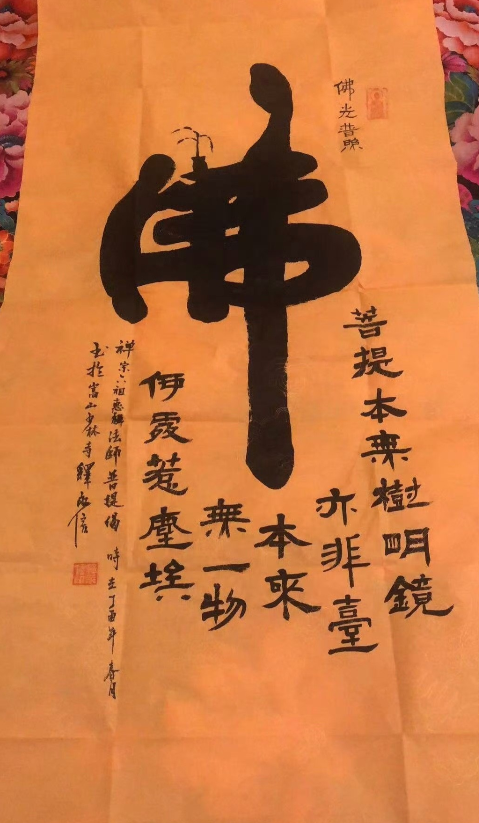 佛光普照
佛
菩提本無樹明鏡
亦非臺
本來
無一物
何處惹塵埃
禪宗六祖惠能法師菩提偈 時在丁酉年春月
书於嵩山少林寺釋永信